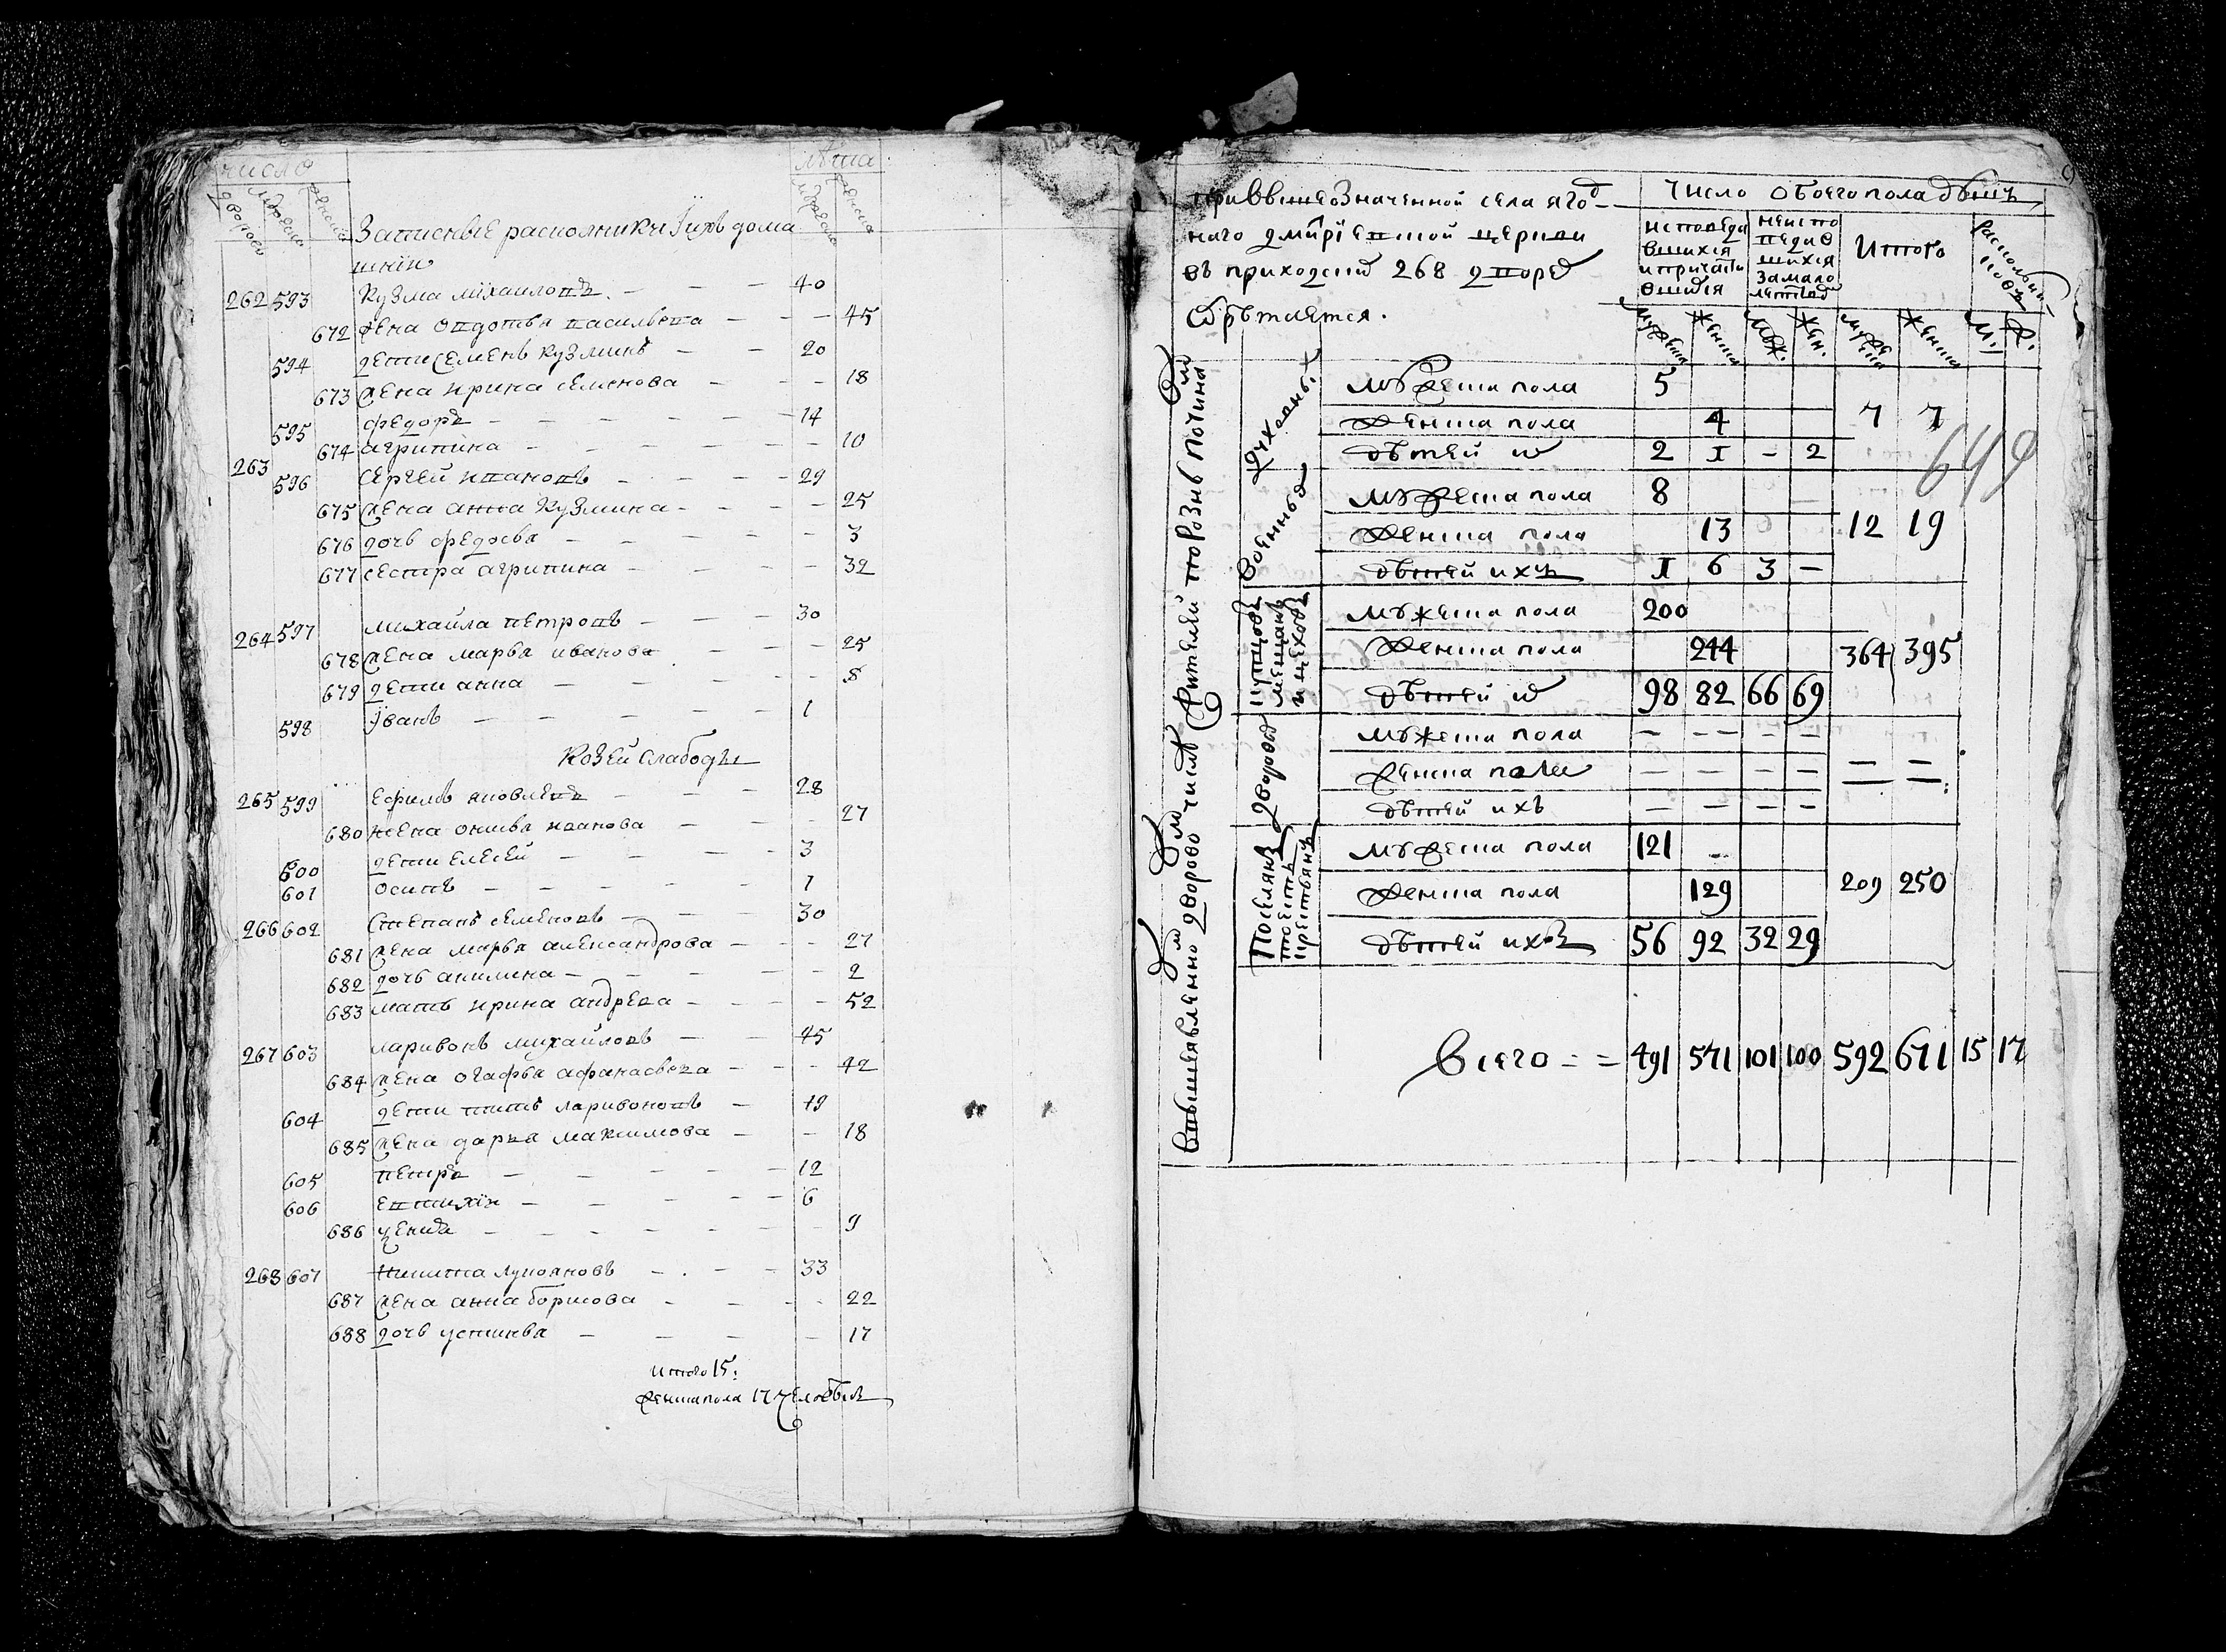 число
лѣта
дворовъ мужеска женска
мужеска женска
Записные расколники ихъ дома
шнiи
262 593 Кузма михаиловъ. - - - 40
672 жена овдотья васильева - - - 45
594 дети семенъ кузминъ - - 20
673 жена ирина семенова - - - 18
595 федоръ - - - - 14
674 агрипина - - - - - 10
263 596 сергей ивановъ - - - - 29
675 жена анна кузмина - - - - 25
676 дочь федосья - - - - - 3
677 сестра агрипина - - - - 32
264 597 михайла петровъ - - - 30
678 жена марья иванова - - - 25
679 дети анна - - - - - 8
598 Iванъ - - - - - - 1
козьей слабоды
265 599 ефимъ яковлевъ - - - 28
680 жена онисья иванова - - - 27
600 дети елесей - - - - 3
601 осипъ - - - - - 1
266 602 степанъ семеновъ - - - 30
681 жена марья александрова - - - 27
682 дочь акилина - - - - - 2
683 мать ирина андреева - - - - 52
267 603 ларивонъ михаиловъ - - 45
684 жена огафья афанасьева - - - 42
604 дети титъ ларивоновъ - 19
685 жена дарья максимова - - 18
605 петръ - - - - - 12
606 евтихiи - - - - 6
686 - - - - - - 9
268 607 никита лукояновъ - - - - 33
687 жена анна борисова - - - - 22
688 дочь устинья - - - - - 17
итого 15:
женска пола 17 человекъ
привышеозначенной села ягод-
наго дмитрiевской церкви
въ приходский 268 дворѣ
обрѣтается.
число обоего пола душъ
исповеда вшихся и причасти вшихся
неиспо ведав шихся за мало летствомъ
Итого
расколни ковъ
мужеска женска муж. жен. мужеска женска м: ж:
Вышеявленно дворово число жителей порознь по чинамъ
Духовных
мужеска пола 5
женска пола 4 7 7
дѣтей их 2 I - 2
649
Военных
мужеска пола 8
женска пола 13 12 19
дѣтей ихъ I 6 3 -
купцовъ мещанъ и цеховъ
мужеска пола 200
женска пола 244 364 395
дѣтей их 98 82 66 69
Дворовых
мужеска пола - - - - -
женска пола - - - - = =
дѣтей ихъ - - - -
Поселянъ то есть крестьянъ
мужеска пола 121 -
женска пола 129 209 250
дѣтей ихъ 56 92 32 29
Всего = = 491 571 101 100 592 671 15 17